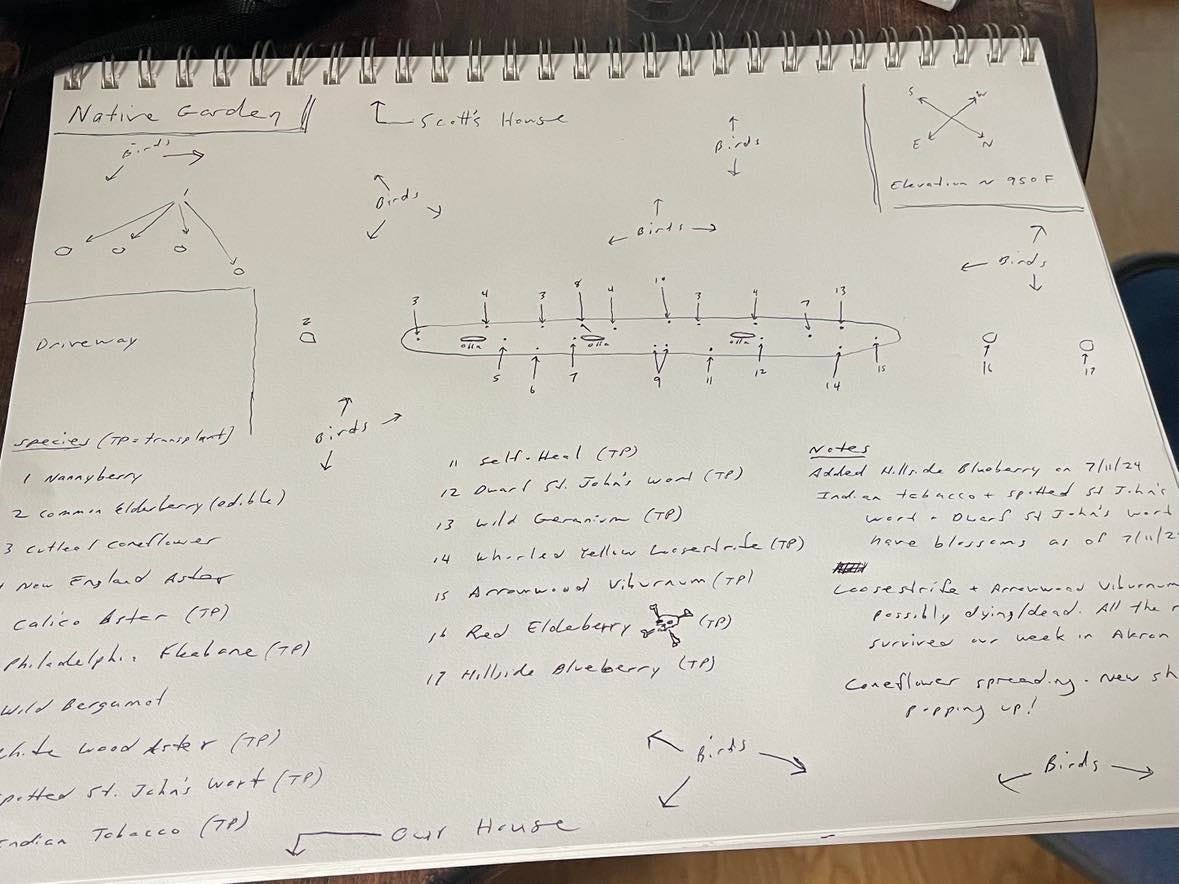 Native Garden
Scott's House
S W
E N
Elevation ~ 950 F
Birds
Birds
Birds
Birds
Birds
1
3 4 3 8 4 10 3 4 7 13
2
olla olla olla
5 6 7 9 11 12 14 15
16 17
Driveway
Birds
Species (TP = transplant)
1 Nannyberry
2 Common Elderberry (edible)
3 Cutleaf coneflower
New England Aster
Calico Aster (TP)
Philadelphia Fleabane (TP)
Wild Bergamot
White Wood Aster (TP)
Spotted St. John's Wort (TP)
Indian Tobacco (TP)
11 Self-Heal (TP)
12 Dwarf St. John's Wort (TP)
13 Wild Geranium (TP)
14 Whorled Yellow Loosestrife (TP)
15 Arrowwood Viburnum (TP)
16 Red Eldeberry (TP)
17 Hillside Blueberry (TP)
Notes
Added Hillside Blueberry on 7/11/24
Indian tobacco + spotted St John's
Wort + Dwarf St John's Wort
have blossoms as of 7/11/2
Loosestrife + Arrowwood Viburnum
possibly dying/dead. All the r
survived our week in Akron
Coneflower spreading. New sh
popping up!
Birds
Birds
Our House